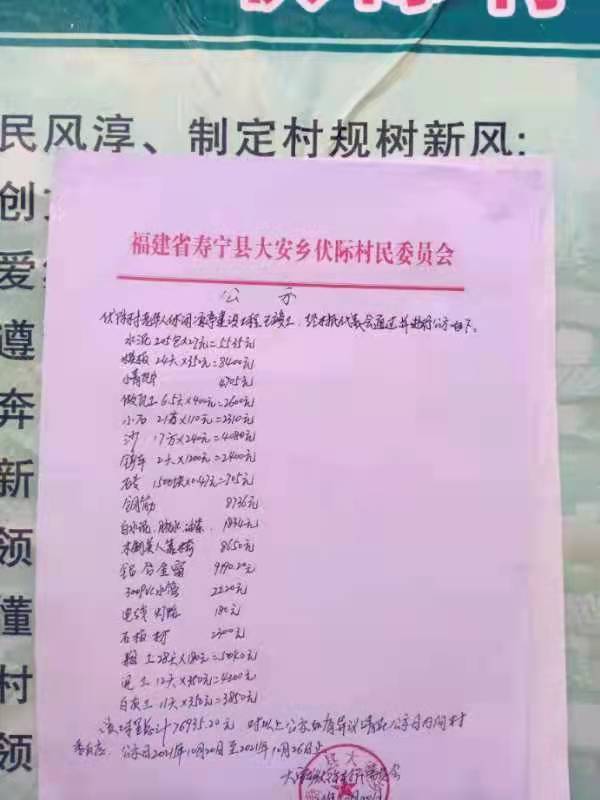 民风淳、制定村规树新风:
创
爱
遵
奔
新
领
懂
村
领
福建省寿宁县大安乡伏际村民委员会
公 示
伏际村老年人休闲凉亭建设工程已竣工,经村民代表会通过并进行公示如下。
水泥 205包×27元=5535元
模板 24天×350元=8400元
4705元
6.5天×400元=2600元
小石 21方×110元=2310元
沙 17方×240元=4080元
2天×1200元=2400元
1500块×0.47元=705元
钢筋 8736元
白水泥、胶水、油漆 1834元
木制美人靠椅 8650元
铝合金 9190.2元
300PVC水管 2220元
电线 灯 180元
石板材 2300元
28天×180元=5040元
12天×350元=4200元
11天×350元=3850元
该工程总计76935.20元 对以上公示如有异议请在公示日内向村
委反应. 公示日2021年10月20日至2021年10月26日止